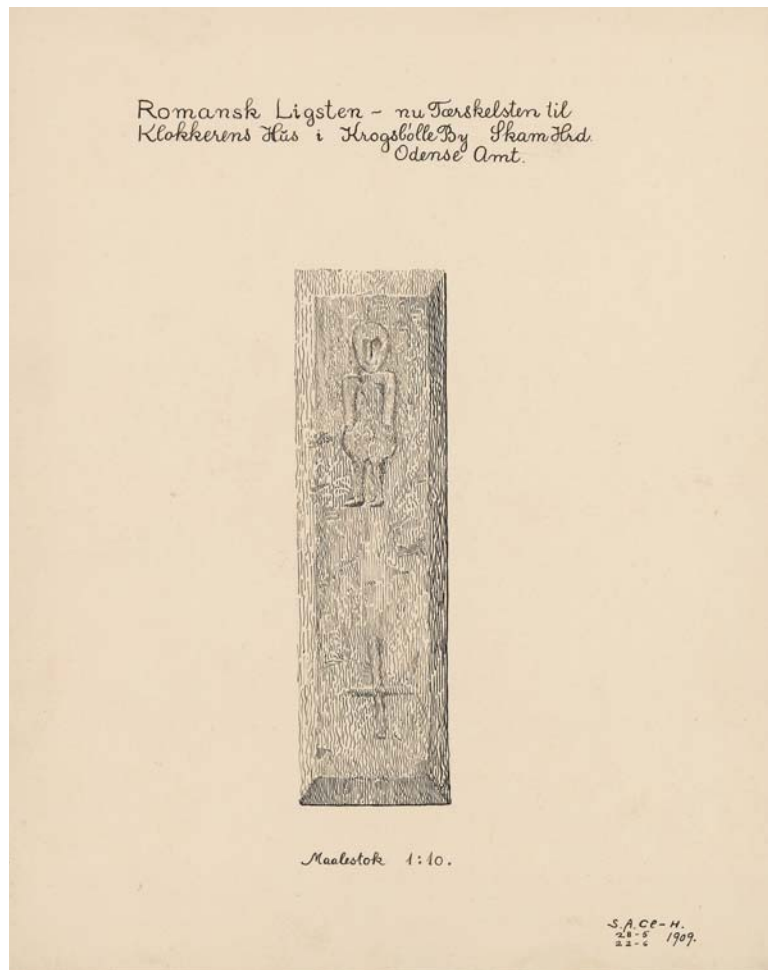 Romansk Ligsten – nu Tærskelsten til
Klokkerens Hus i Krogsbølle By Skam Hrd.
Odense Amt.
Maalestok 1:10.
S.A.Cl-H.
28-5
22-6 1909.